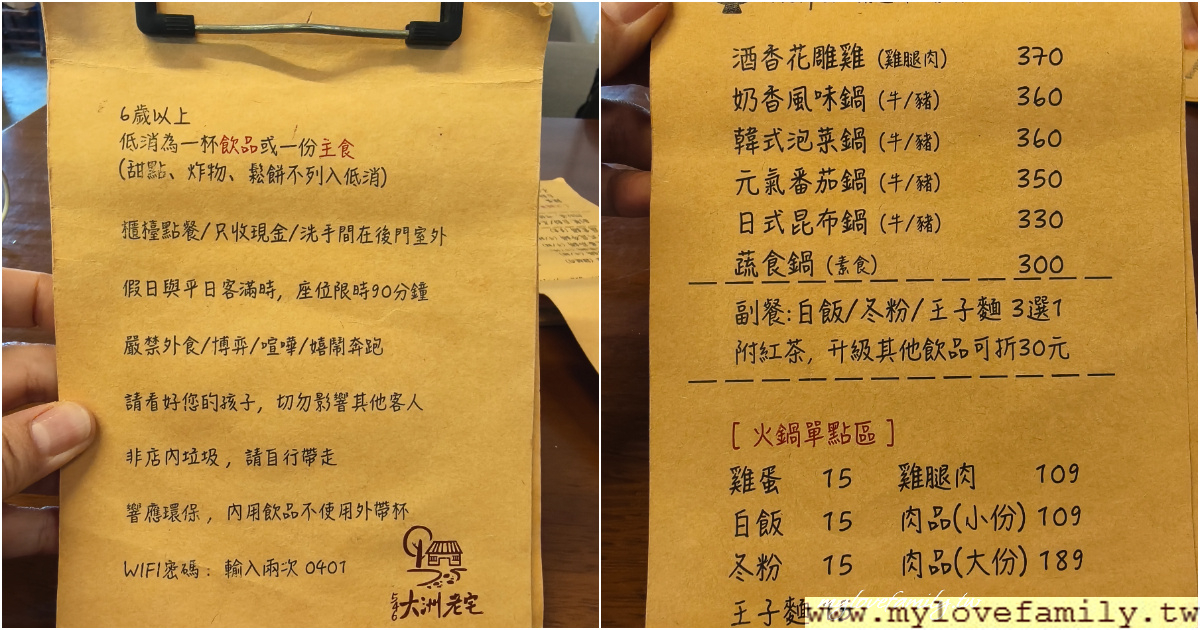 6歲以上
低消為一杯飲品或一份主食
(甜點、炸物、鬆餅不列入低消)
櫃檯點餐/只收現金/洗手間在後門室外
假日與平日客滿時, 座位限時90分鐘
嚴禁外食/博弈/喧嘩/嬉鬧奔跑
請看好您的孩子, 切勿影響其他客人
非店內垃圾, 請自行帶走
響應環保, 內用飲品不使用外帶杯
WIFI密碼: 輸入兩次 0401
大洲老宅
酒香花雕雞 (雞腿肉) 370
奶香風味鍋 (牛/豬) 360
韓式泡菜鍋 (牛/豬) 360
元氣番茄鍋 (牛/豬) 350
日式昆布鍋 (牛/豬) 330
蔬食鍋 (素食) 300
副餐:白飯/冬粉/王子麵 3選1
附紅茶, 升級其他飲品可折30元
[ 火鍋單點區 ]
雞蛋 15 雞腿肉 109
白飯 15 肉品(小份) 109
冬粉 15 肉品(大份) 189
王子麵
www.mylovefamily.tw